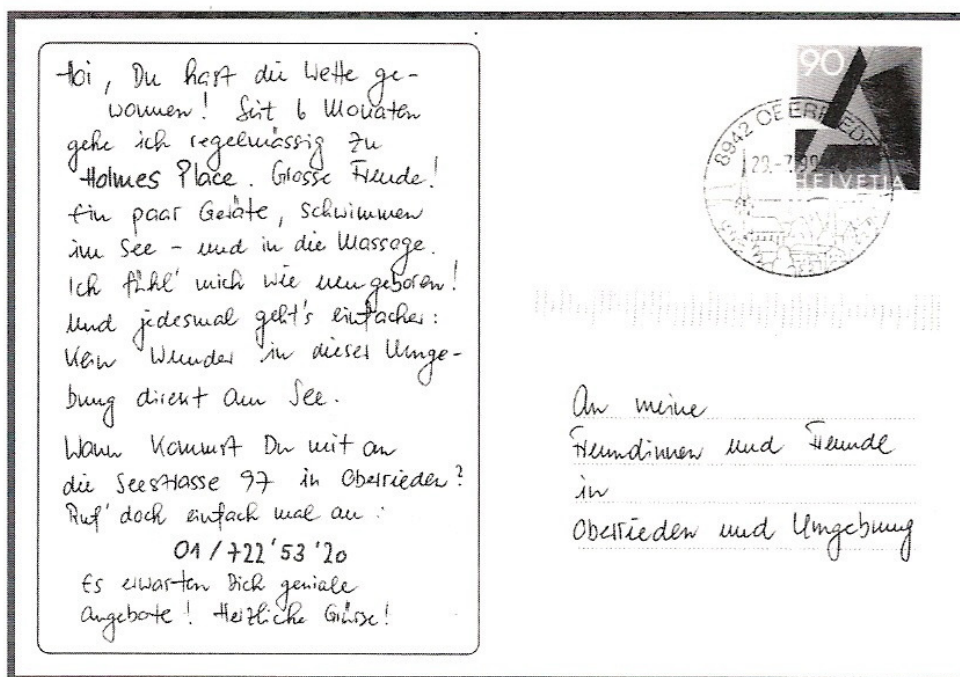 Hoi, Du hast die Wette ge-
wonnen! Seit 6 Monaten
gehe ich regelmässig zu
Holmes Place. Grosse Freude!
Ein paar Geräte, schwimmen
im See - und in die Massage.
Ich fühl' mich wie neugeboren!
Und jedesmal geht's einfacher:
Kein Wunder in dieser Umge-
bung direkt am See.
Wann kommst Du mit an
die Seestrasse 97 in Oberrieden?
Ruf' doch einfach mal an:
01/722'53'20
Es erwarten Dich geniale
Angebote! Herzliche Grüsse!
90
HELVETIA
8942 OBERRIEDEN
An meine
Freundinnen und Freunde
in
Oberrieden und Umgebung